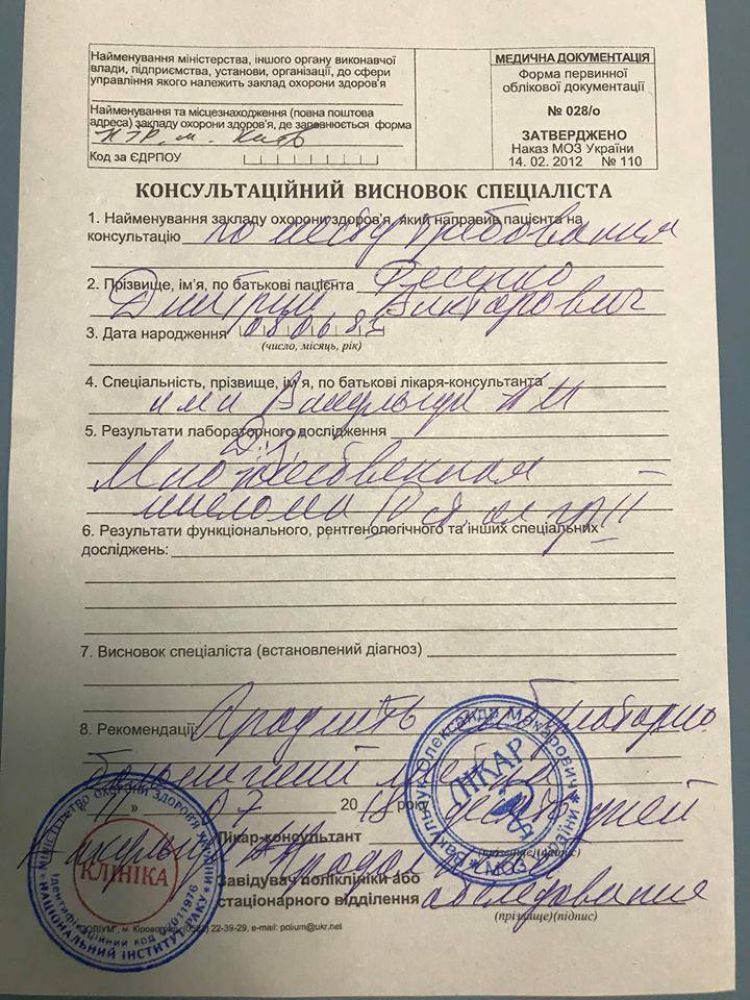 Найменування міністерства, іншого органу виконавчої
влади, підприємства, установи, організації, до сфери
управління якого належить заклад охорони здоров'я
Найменування та місцезнаходження (повна поштова
адреса) закладу охорони здоров'я, де заповнюється форма
м. Київ
Код за ЄДРПОУ
МЕДИЧНА ДОКУМЕНТАЦІЯ
Форма первинної
облікової документації
№ 028/о
ЗАТВЕРДЖЕНО
Наказ МОЗ України
14. 02. 2012 № 110
КОНСУЛЬТАЦІЙНИЙ ВИСНОВОК СПЕЦІАЛІСТА
1. Найменування закладу охорони здоров'я, який направив пацієнта на
консультацію по месту требования
2. Прізвище, ім'я, по батькові пацієнта Фесенко
Дмитрий Викторович
3. Дата народження
(число, місяць, рік)
4. Спеціальність, прізвище, ім'я, по батькові лікаря-консультанта
5. Результати лабораторного дослідження
Множественная
миелома
6. Результати функціонального, рентгенологічного та інших спеціальних
досліджень:
7. Висновок спеціаліста (встановлений діагноз)
8. Рекомендації: Продлить
больничный
07 2018 року
Лікар-консультант
(прізвище)(підпис)
Завідувач поліклініки або
стаціонарного відділення обследования
(прізвище)(підпис)
ЛІКАР
Олександр Макарович
МІНІСТЕРСТВО ОХОРОНИ ЗДОРОВ'Я УКРАЇНИ
НАЦІОНАЛЬНИЙ ІНСТИТУТ РАКУ
Ідентифікаційний код
КЛІНІКА
22-39-29, e-mail: polium@ukr.net